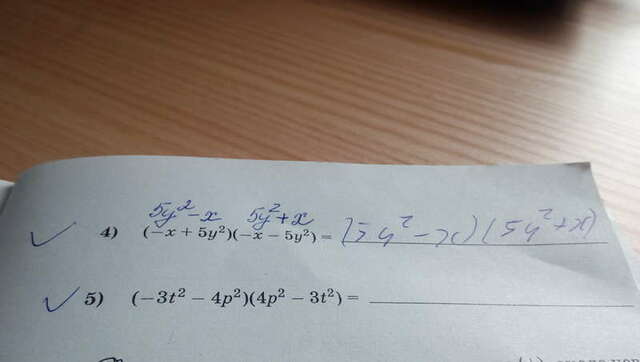 5y²-x 5y²+x
4) (-x + 5y²)(-x - 5y²) = (5y² - x)(5y² + x)
5) (-3t² - 4p²)(4p² - 3t²) =